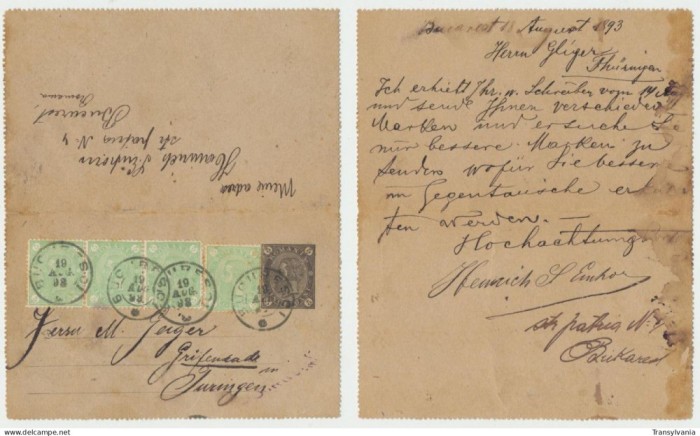 Meine adres
Heinrich
str patria N. 4
Bucarest
BUCURESCI
19
AUG
93
BUCURESCI
19
AUG
93
BUCURESCI
19
AUG
93
BUCURESCI
19
AUG
93
Herrn M. Geiger
in
Turingen
Bucarest August 1893
Herrn Gleiger
Thüringen
Ich erhielt Ihr. w. Schreiben vom 14
und sende Ihnen verschieden
Marken und ersuche Sie
nur bessere Marken zu
senden wofür Sie bessere
im Gegentausche erhal
ten werden. —
Hochachtung
Heinrich S
str patria N. 4
Bukarest
www.delcampe.net
Transylvania